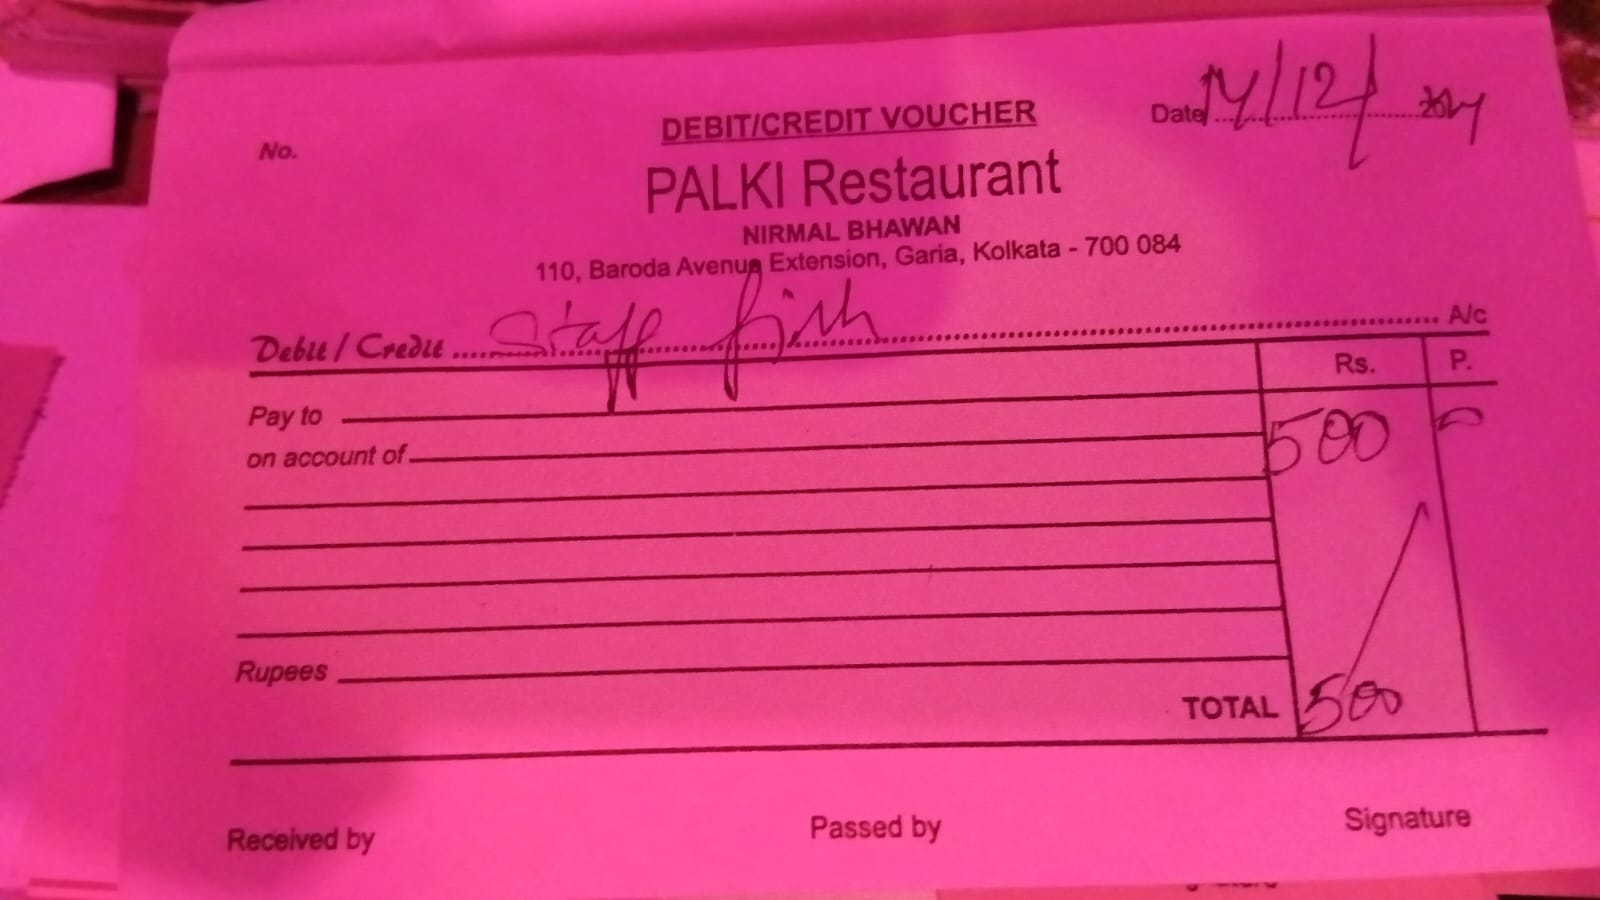 DEBIT/CREDIT VOUCHER
No.
Date 14/12/2024
PALKI Restaurant
NIRMAL BHAWAN
110, Baroda Avenue Extension, Garia, Kolkata - 700 084
Debit / Credit Staff fish A/c
Rs. P.
Pay to
500
on account of
Rupees
TOTAL 500
Received by Passed by Signature